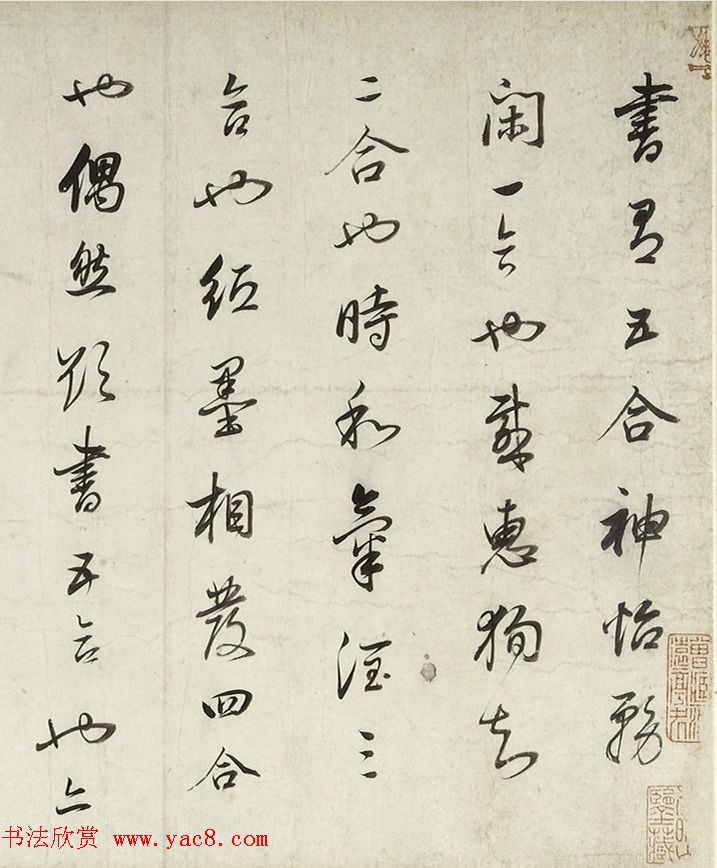 書有五合神怡務
閑一合也感惠狥知
二合也時和氣潤三
合也紙墨相發四合
也偶然欲書五合也
书法欣赏 www.yac8.com